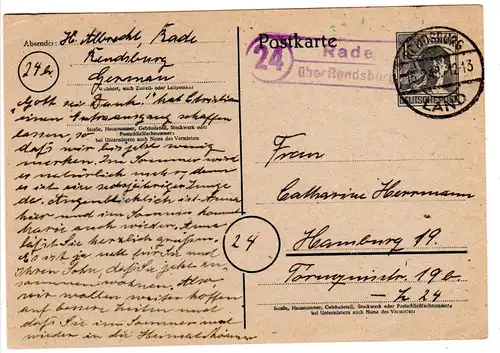 Absender: H. Albrecht, Rade
Rendsburg
24b
Germany
Wohnort, auch Zustell- oder Leitpostamt
Gott sei Dank! hat Christian
einen
schaffen
lassen, so
Straße, Hausnummer, Gebäudeteil, Stockwerk oder
Postschließfachnummer;
bei Untermietern auch Name des Vermieters
daß wir bis jetzt wenig
merken. Im Sommer wird
es natürlich mehr, denn
es ist ein sechsjähriger Junge
da. Augenblicklich ist Anna
hier und im Sommer kommt
Marie auch wieder. Anna
läßt Sie herzlich grüßen.
Es ist ja
und
Ihren Sohn, daß Sie jetzt zu-
sammen wohnen. Aber
wir wollen weiter hoffen
auf bessere Zeiten und
daß Sie im Sommer mal
wieder in die Heimat können
Postkarte
24
Rade
über Rendsburg
RENDSBURG
DEUTSCHE POST
Frau
Catharine Herrmann
24
Hamburg 19.
Tornquiststr. 19b.
Straße, Hausnummer, Gebäudeteil, Stockwerk oder Postschließfachnummer;
bei Untermietern auch Name des Vermieters